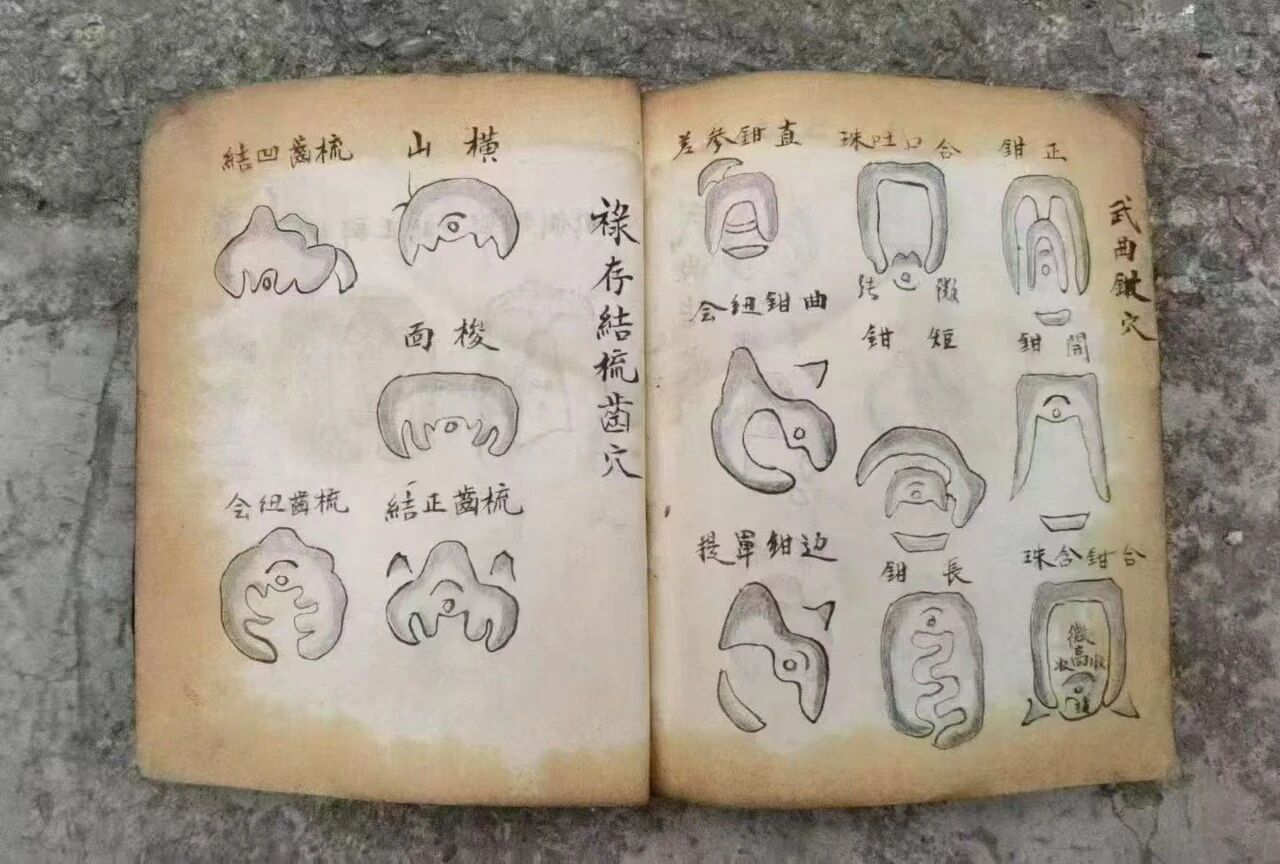 武曲鉗穴
正鉗
合口吐珠
直鉗參差
微
開鉗
短鉗
曲鉗紐会
合鉗含珠
微高
收
收
長鉗
边鉗單提
祿存結梳齒穴
橫山
梳齒凹結
梭面
梳齒正結
梳齒紐会